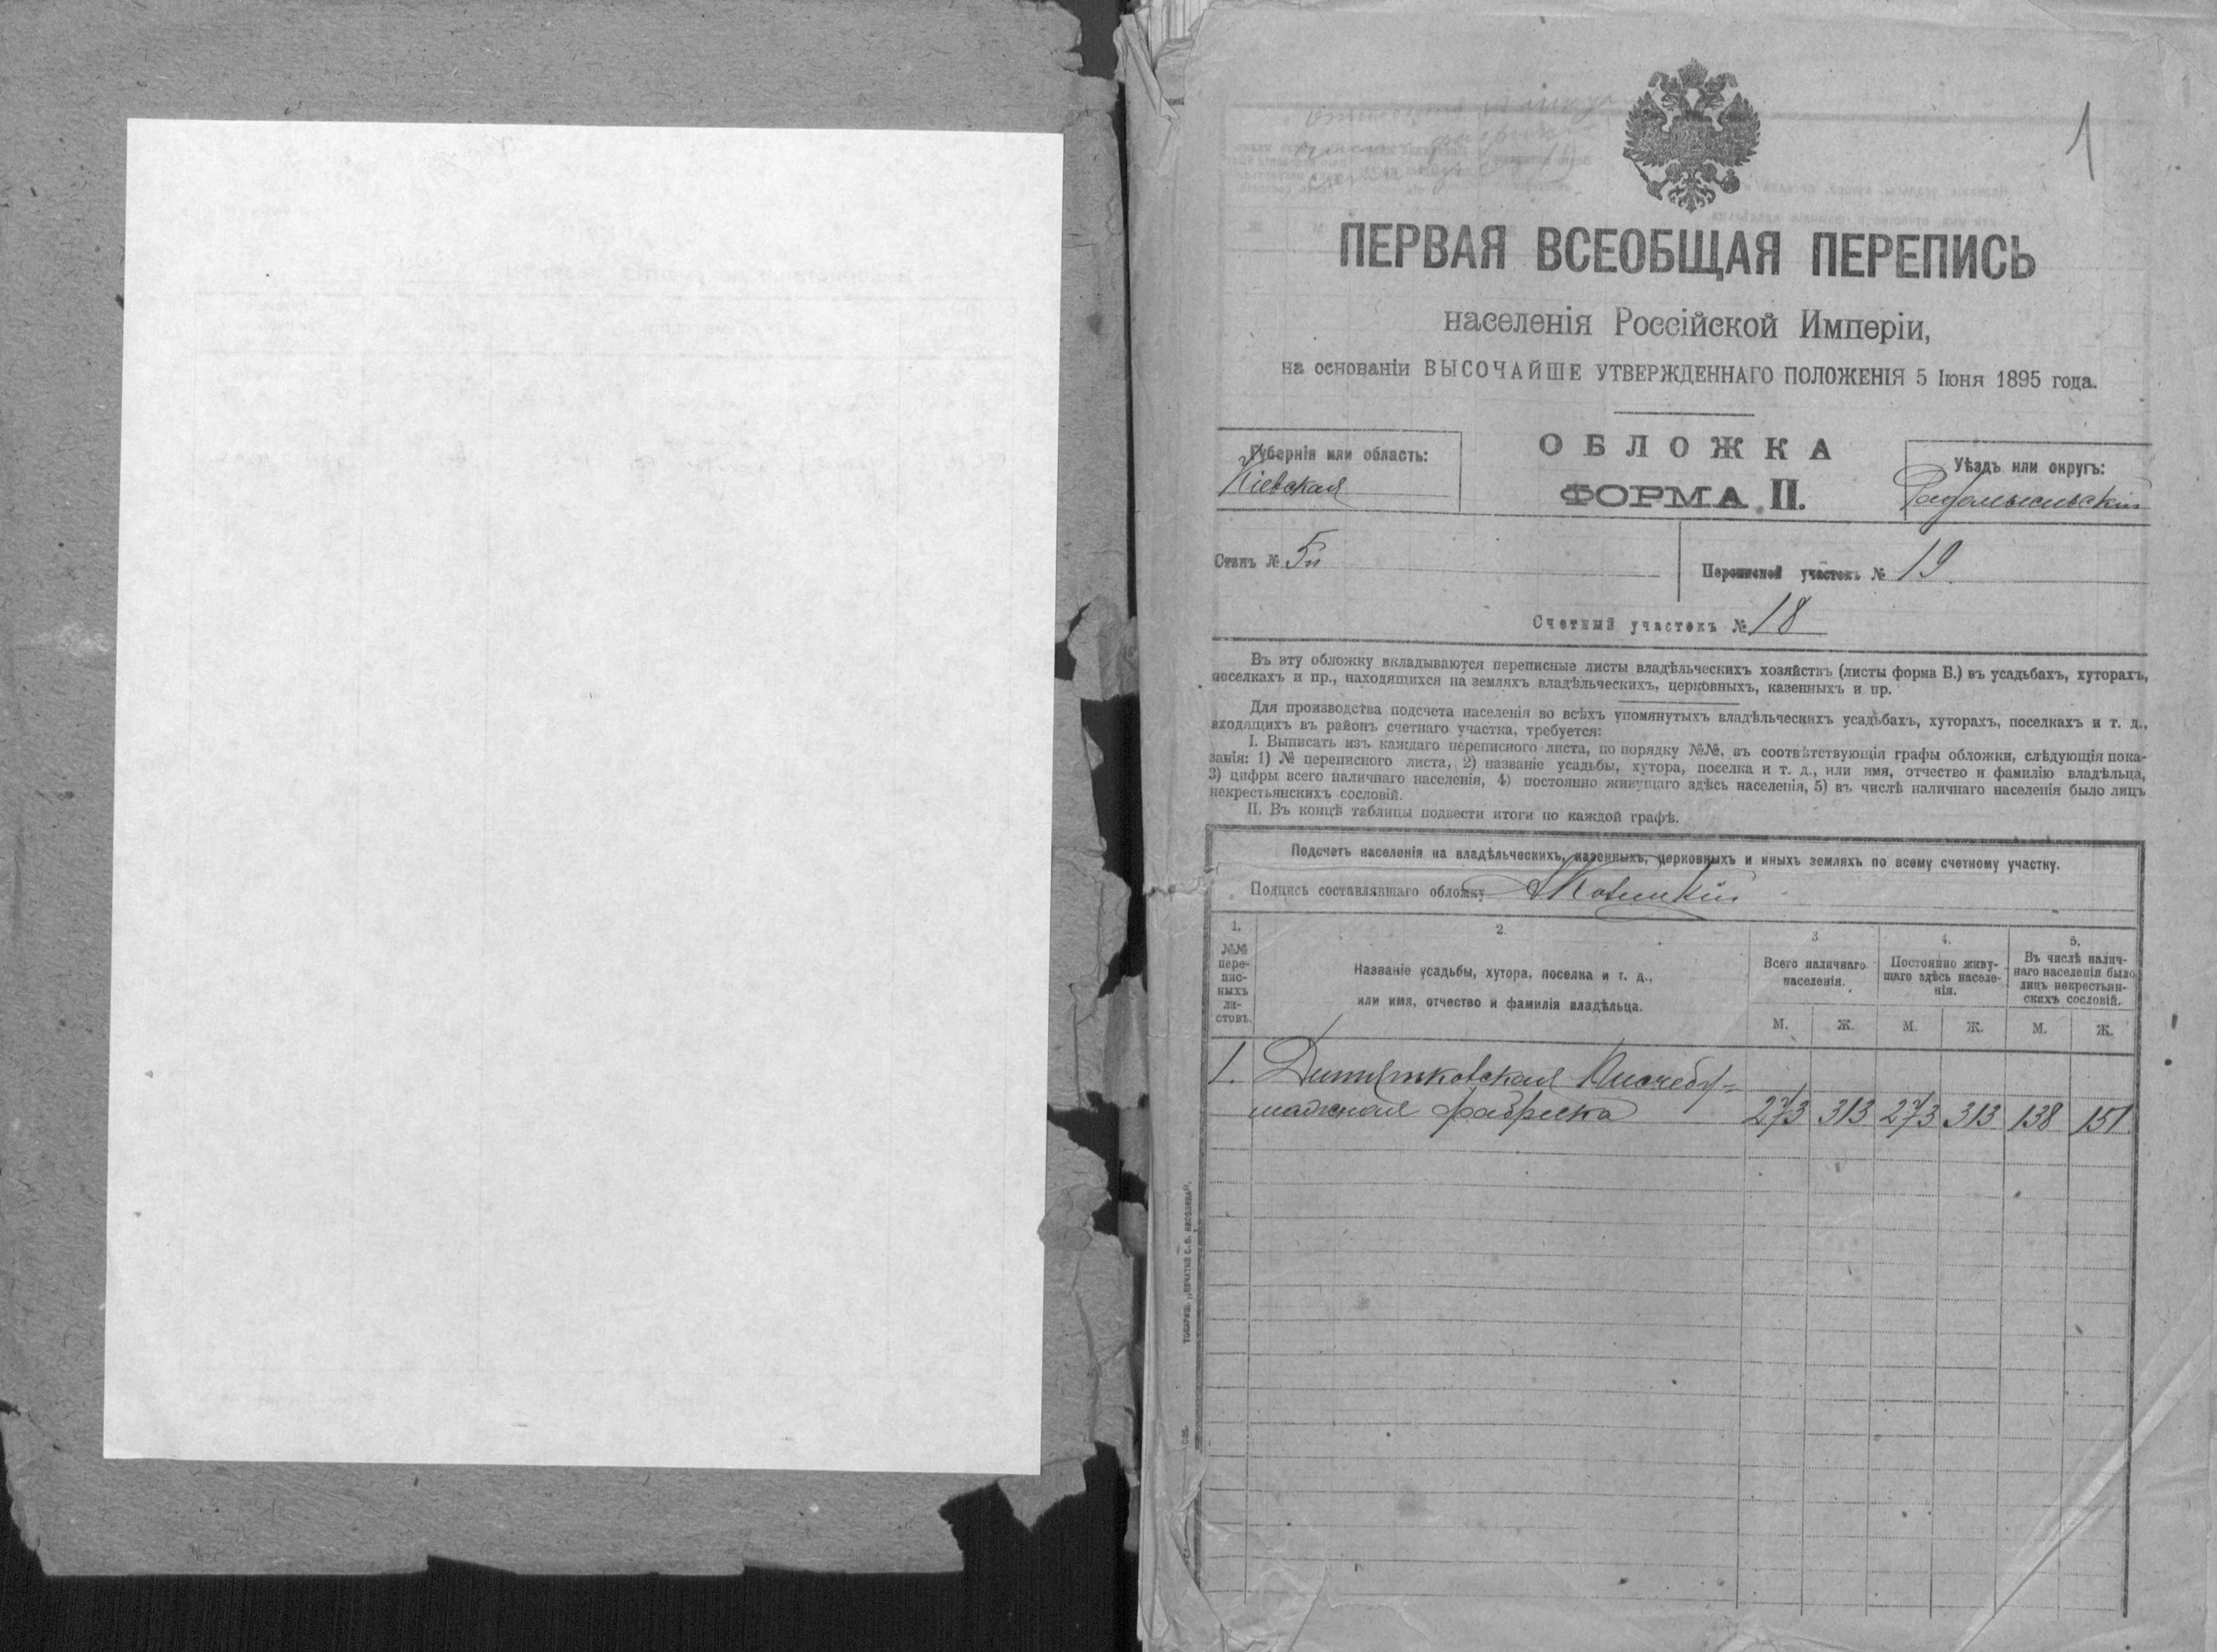 1
ПЕРВАЯ ВСЕОБЩАЯ ПЕРЕПИСЬ
населенія Россійской Имперіи,
на основаніи ВЫСОЧАЙШЕ УТВЕРЖДЕННАГО ПОЛОЖЕНІЯ 5 Іюня 1895 года.
Губернія или область:
Кіевская
ОБЛОЖКА
ФОРМА II.
Уѣздъ или округъ:
Радомысльскій
Станъ № 5й
Переписной участокъ № 19.
Счетный участокъ № 18
Въ эту обложку вкладываются переписные листы владѣльческихъ хозяйствъ (листы форма Б.) въ усадьбахъ, хуторахъ,
поселкахъ и пр., находящихся на земляхъ владѣльческихъ, церковныхъ, казенныхъ и пр.
Для производства подсчета населенія во всѣхъ упомянутыхъ владѣльческихъ усадьбахъ, хуторахъ, поселкахъ и т. д.,
входящихъ въ районъ счетнаго участка, требуется:
I. Выписать изъ каждаго переписного листа, по порядку №№, въ соотвѣтствующія графы обложки, слѣдующія пока-
занія: 1) № переписного листа, 2) названіе усадьбы, хутора, поселка и т. д., или имя, отчество и фамилію владѣльца,
3) цифры всего наличнаго населенія, 4) постоянно живущаго здѣсь населенія, 5) въ числѣ наличнаго населенія было лицъ
некрестьянскихъ сословій.
II. Въ концѣ таблицы подвести итоги по каждой графѣ.
Подсчетъ населенія на владѣльческихъ, казенныхъ, церковныхъ и иныхъ земляхъ по всему счетному участку.
Подпись составлявшаго обложку
1.
№№
пере-
пис-
ныхъ
ли-
стовъ.
2.
Названіе усадьбы, хутора, поселка и т. д.,
или имя, отчество и фамилія владѣльца.
3
Всего наличнаго
населенія.
М. Ж.
4.
Постоянно живу-
щаго здѣсь населе-
нія.
М. Ж.
5.
Въ числѣ налич-
наго населенія было
лицъ некрестьян-
скихъ сословій.
М. Ж.
1. Дитятковская Писчебу-
мажная фабрика 273 313 273 313 138 151